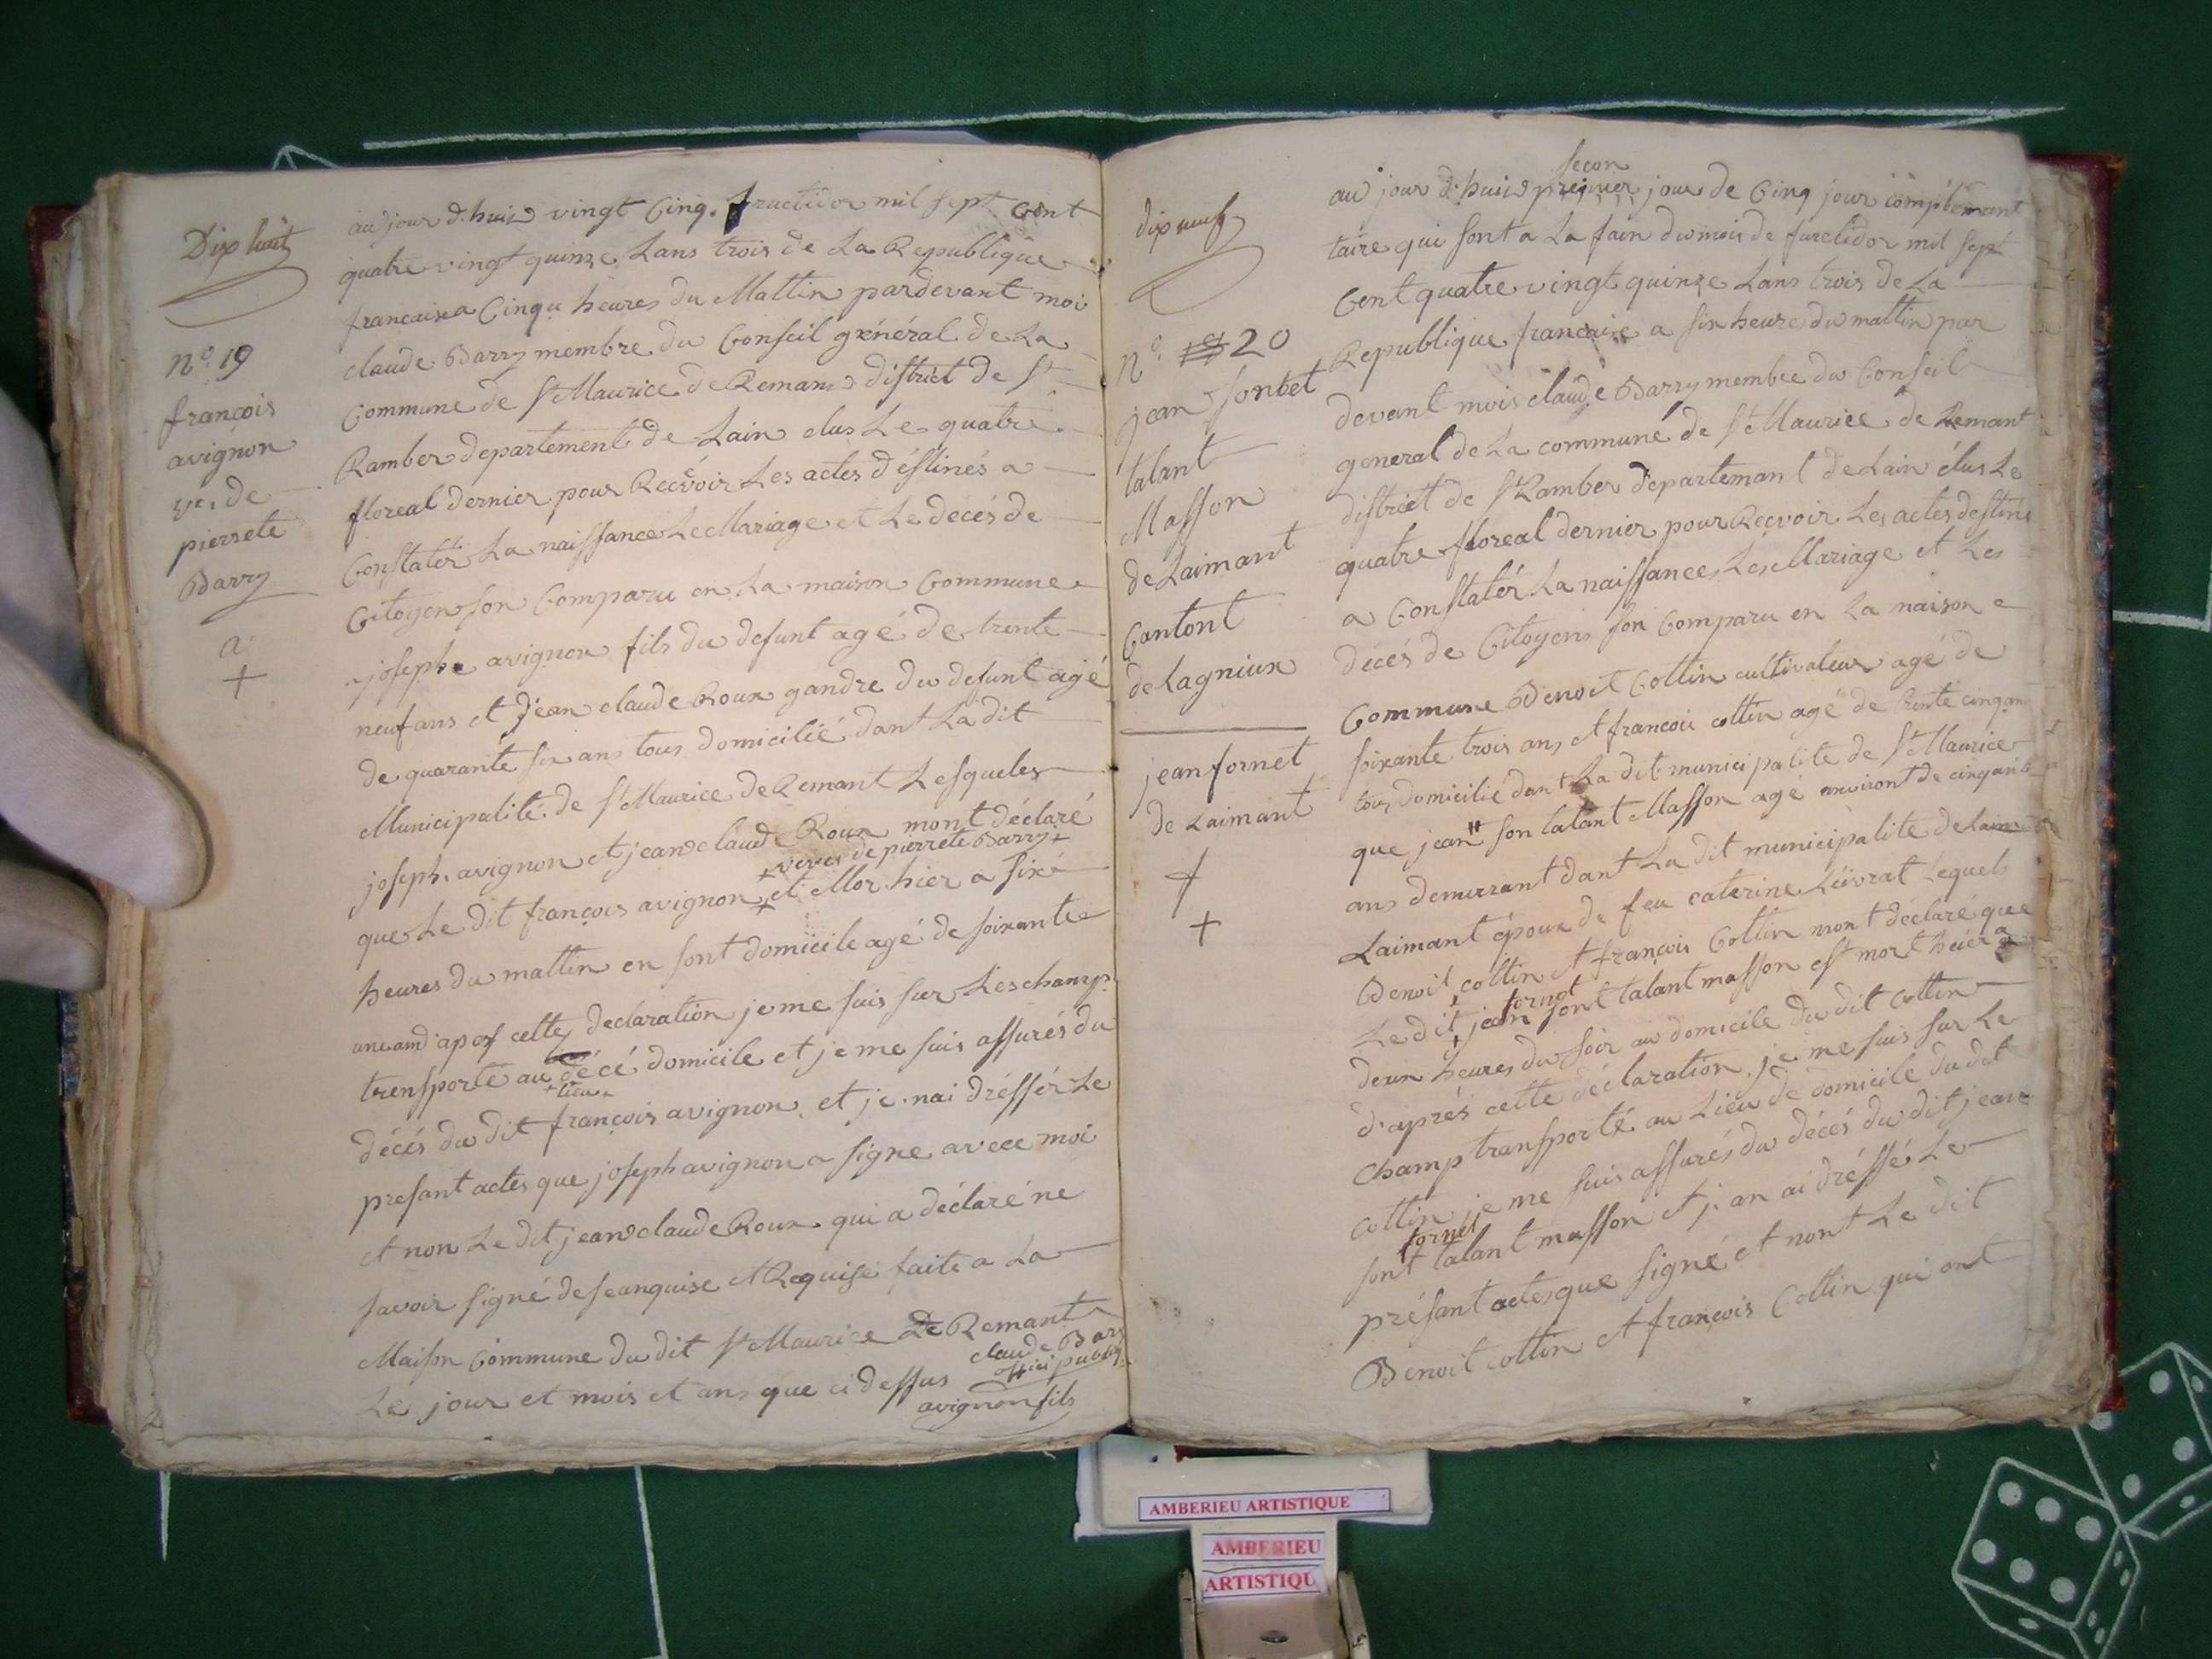 Dix huit
n.o 19
françois
avignon
ve. de
pierrete
Barry
a
+
au jour d.huis vingt Cinq. fructidor mil sept Cent
quatre vingt quinze Lans trois de La Republique
francaise a Cinqu heures du Mattin pardevant moi
claude Barry membre du Conseil général de La
Commune de St Maurice de Remans district de St
Ramber departement de Lain elus Le quatre
floreal dernier pour Recevoir Les actes déstinés a
Constatér La naissance Le Mariage et Le decés de
Citoyen son Comparu en La maison Commune
josephe avignon fils du defunt agé de trente
neuf ans et Jean claude Roux gandre du defunt agé
de quarante six ans tous domicilié dant La dit
Municipalité de St Maurice de Remant Lesqueles
joseph avignon et jean claude Roux mont déclaré
+ veves de pierrete Barry +
que Le dit françois avignon et Mor hier a sixé
heures du mattin en sont domicile agé de soixante
une and apos cette declaration je me suis sur Les champ
trensporté au décé domicile et je me suis assurés du
+ lieu +
décés du dit françois avignon et je nai drésser Le
presant actes que joseph avignon a signe avece moi
et non Le dit jean claude Roux qui a déclaré ne
savoir signé de seanquise et Requise faite a La
Maison Commune du dit St Maurice de Remant
Le jour et mois et ans que ci dessus
claude Bary
offici public
avignon fils
dix neuf
n.o 19 20
jean sontet
talant
Masson
de Laimant
Cantont
de Lagniux
jean fornet
de Laimant
+
+
secon
au jour d.huis premier jour de Cinq jour complémant
taire qui sont a La fain du mois de furctidor mil sept
Cent quatre vingt quinze Lans trois de La
Republique francaise a six heure du mattin par
devant mois claude Barry membre du Conseil
general de La commune de St Maurice de Remant
district de St Ramber departemant de Lain élus Le
quatre floreal dernier pour Reçvoir Les actes destiné
a Constatér La naissance, Les Mariage et Les
décés de Citoyens son Comparu en La naison
Commune Benoit Cottin cultivateur agé de
soixante trois ans et francois cottin agé de trente cinq an
tous domicilié dant La dit municipalite de St Maurice
que jean son talant Masson agé anviront de cinqante
ans demurrant dant La dit municipalite de
Laimant époux de feu caterine Livrat Lequels
Benoit cottin et françois Cottin mont déclaré que
fornet
Le dit jean sont talant masson est mort heier a
deux heures du soir au domicile du dit cottin
d'aprés cette déclaration je me suis sur Le
champ transporté au Lieu de domicile du dit
cottin je me suis assurés du décés du dit jean
fornet
sont talant masson et j. an ai dréssé Le
présant actes que signé et nont Le dit
Benoit cottin et françois Cottin qui ont
AMBERIEU ARTISTIQUE
AMBERIEU
ARTISTIQU